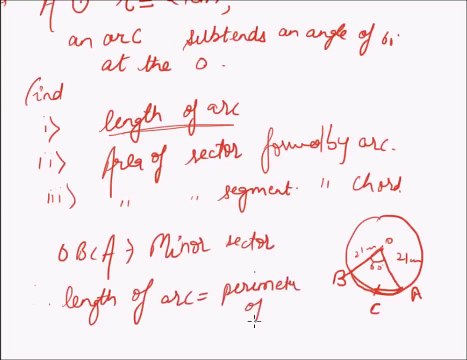 A ⊙ r = 21cm,
an arc subtends an angle of 60
at the O.
find
i> length of arc
ii> Area of sector formed by arc.
iii> " " segment " chord
OBCA → Minor sector
∴ length of arc = perimeter
of
O
21cm 21cm
60
B A
C